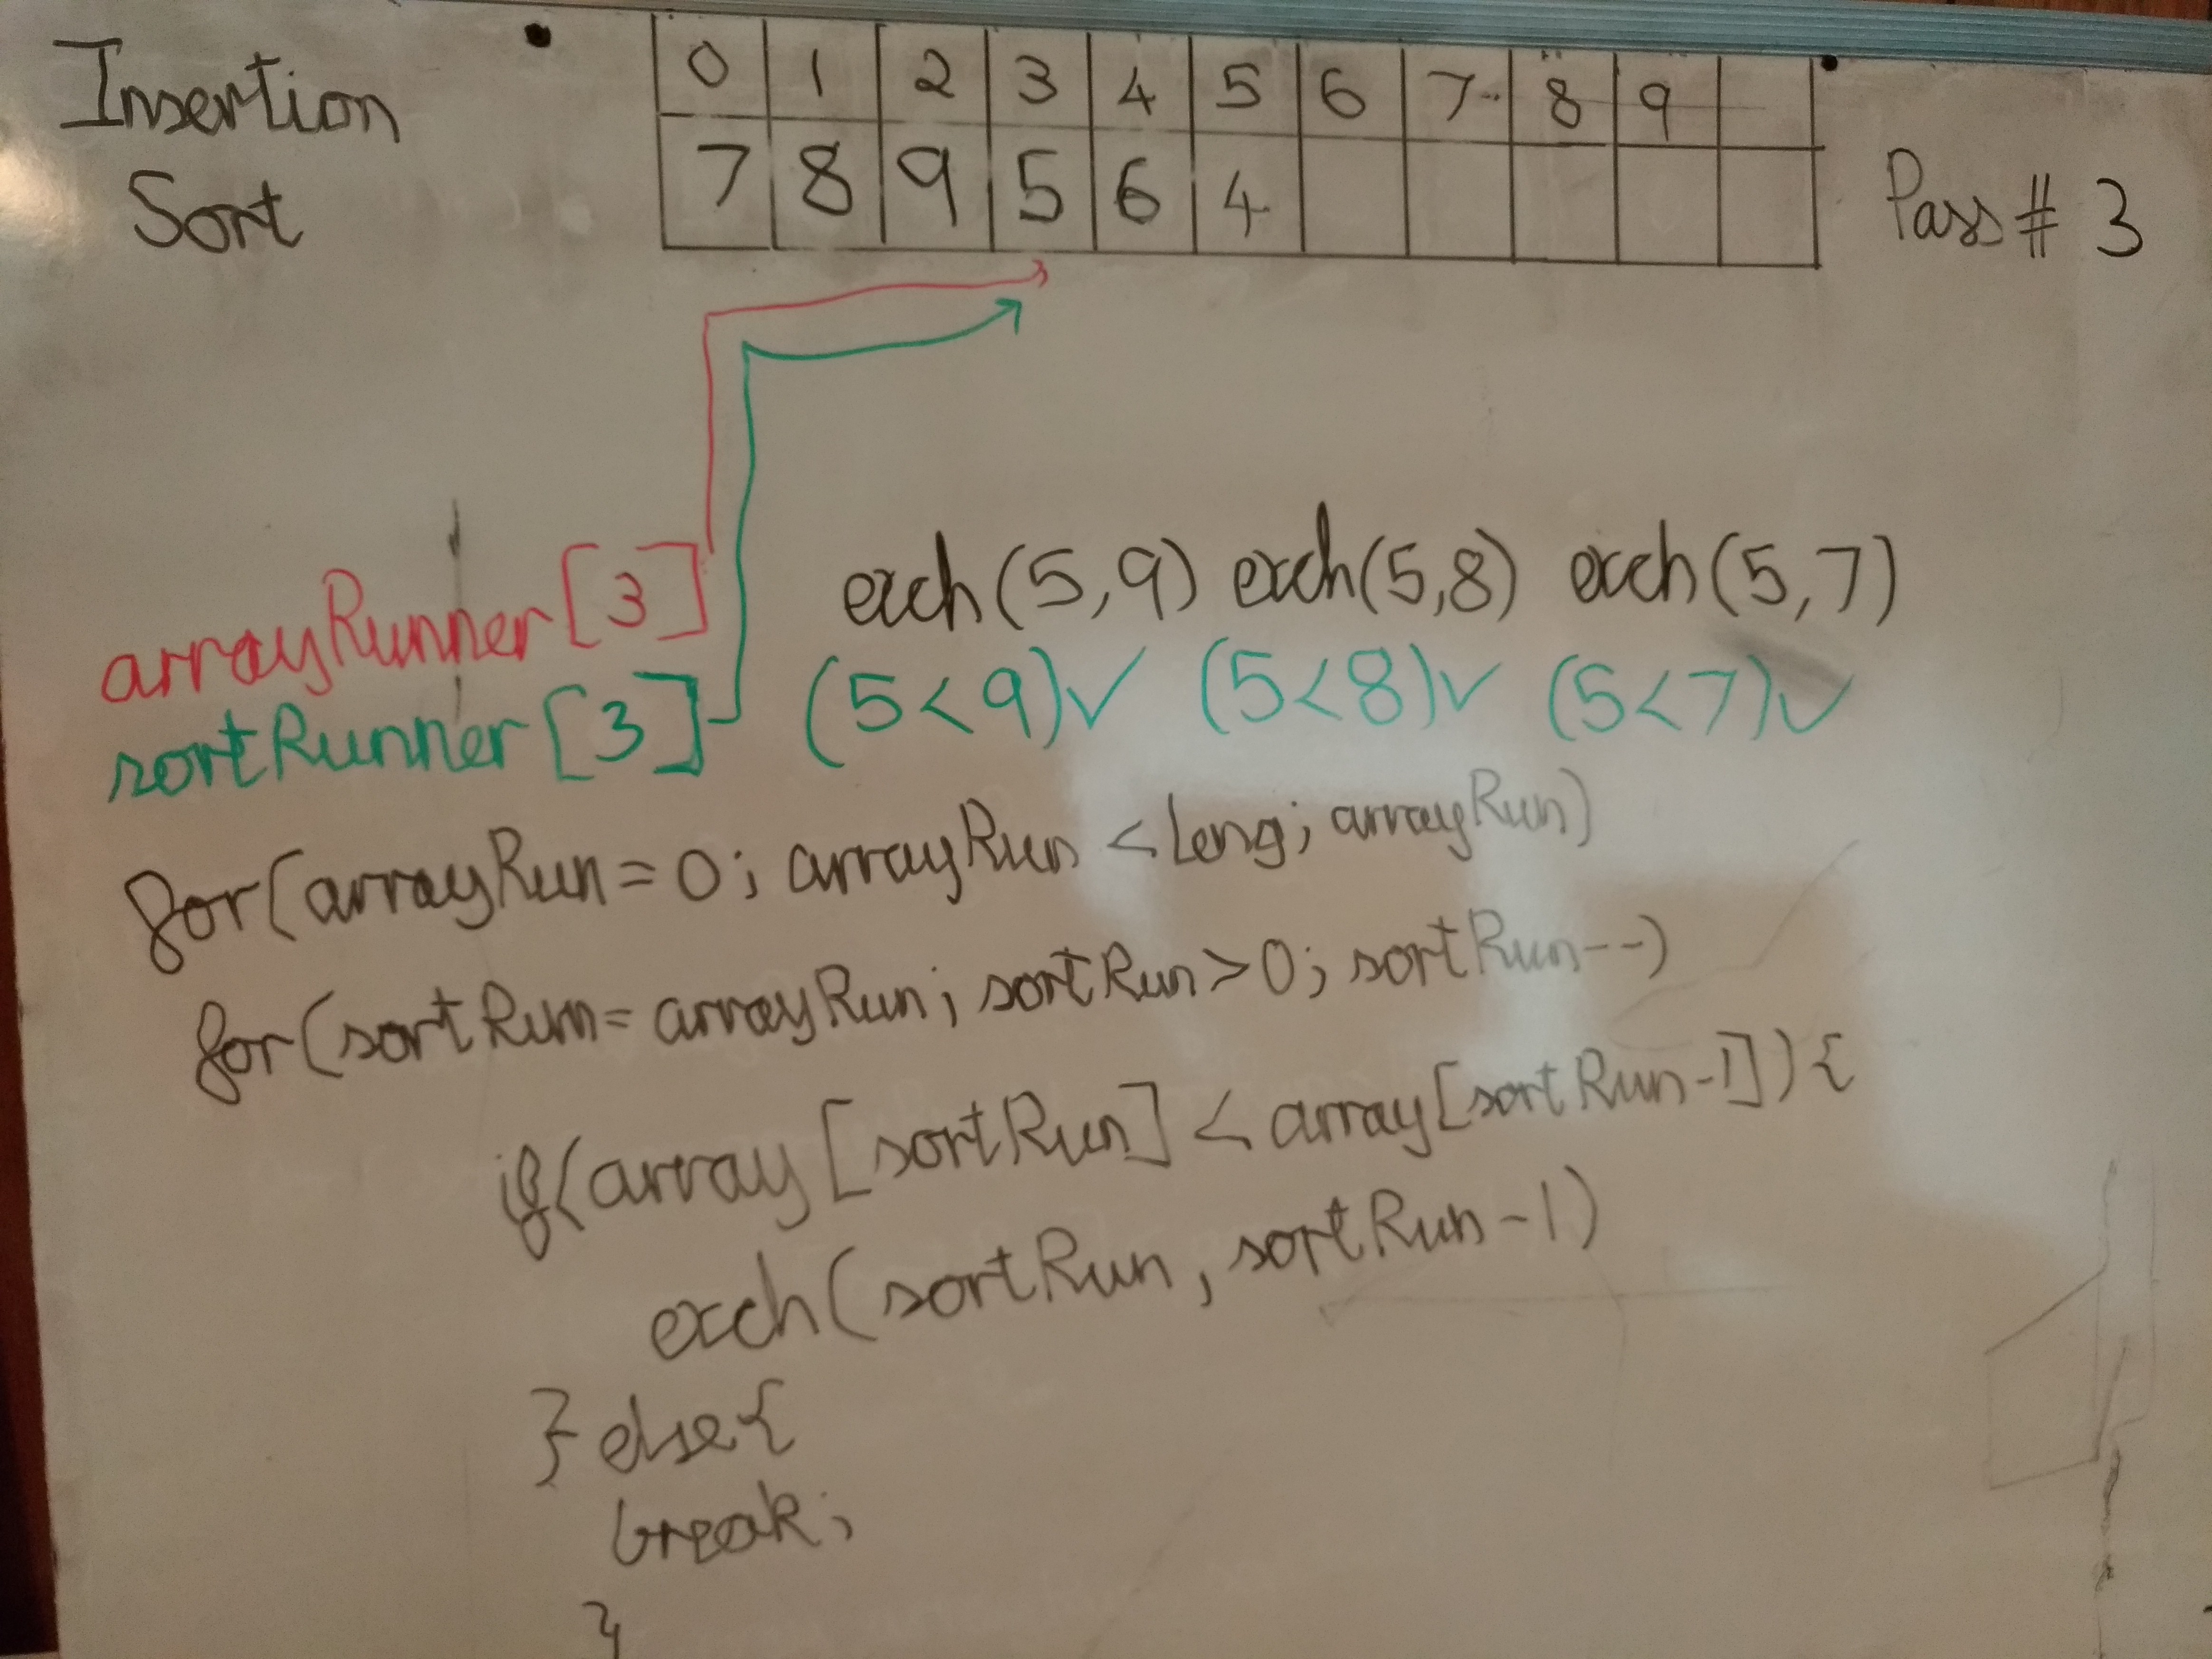 Insertion
Sort
0 1 2 3 4 5 6 7 8 9
7 8 9 5 6 4
Pass # 3
arrayRunner[3]
exch(5,9) exch(5,8) exch(5,7)
sortRunner[3] (5<9)✓ (5<8)✓ (5<7)✓
for(arrayRun=0; arrayRun<Leng; arrayRun)
for(sortRun=arrayRun; sortRun>0; sortRun--)
if(array[sortRun] < array[sortRun-1]){
exch(sortRun, sortRun-1)
} else{
break;
}